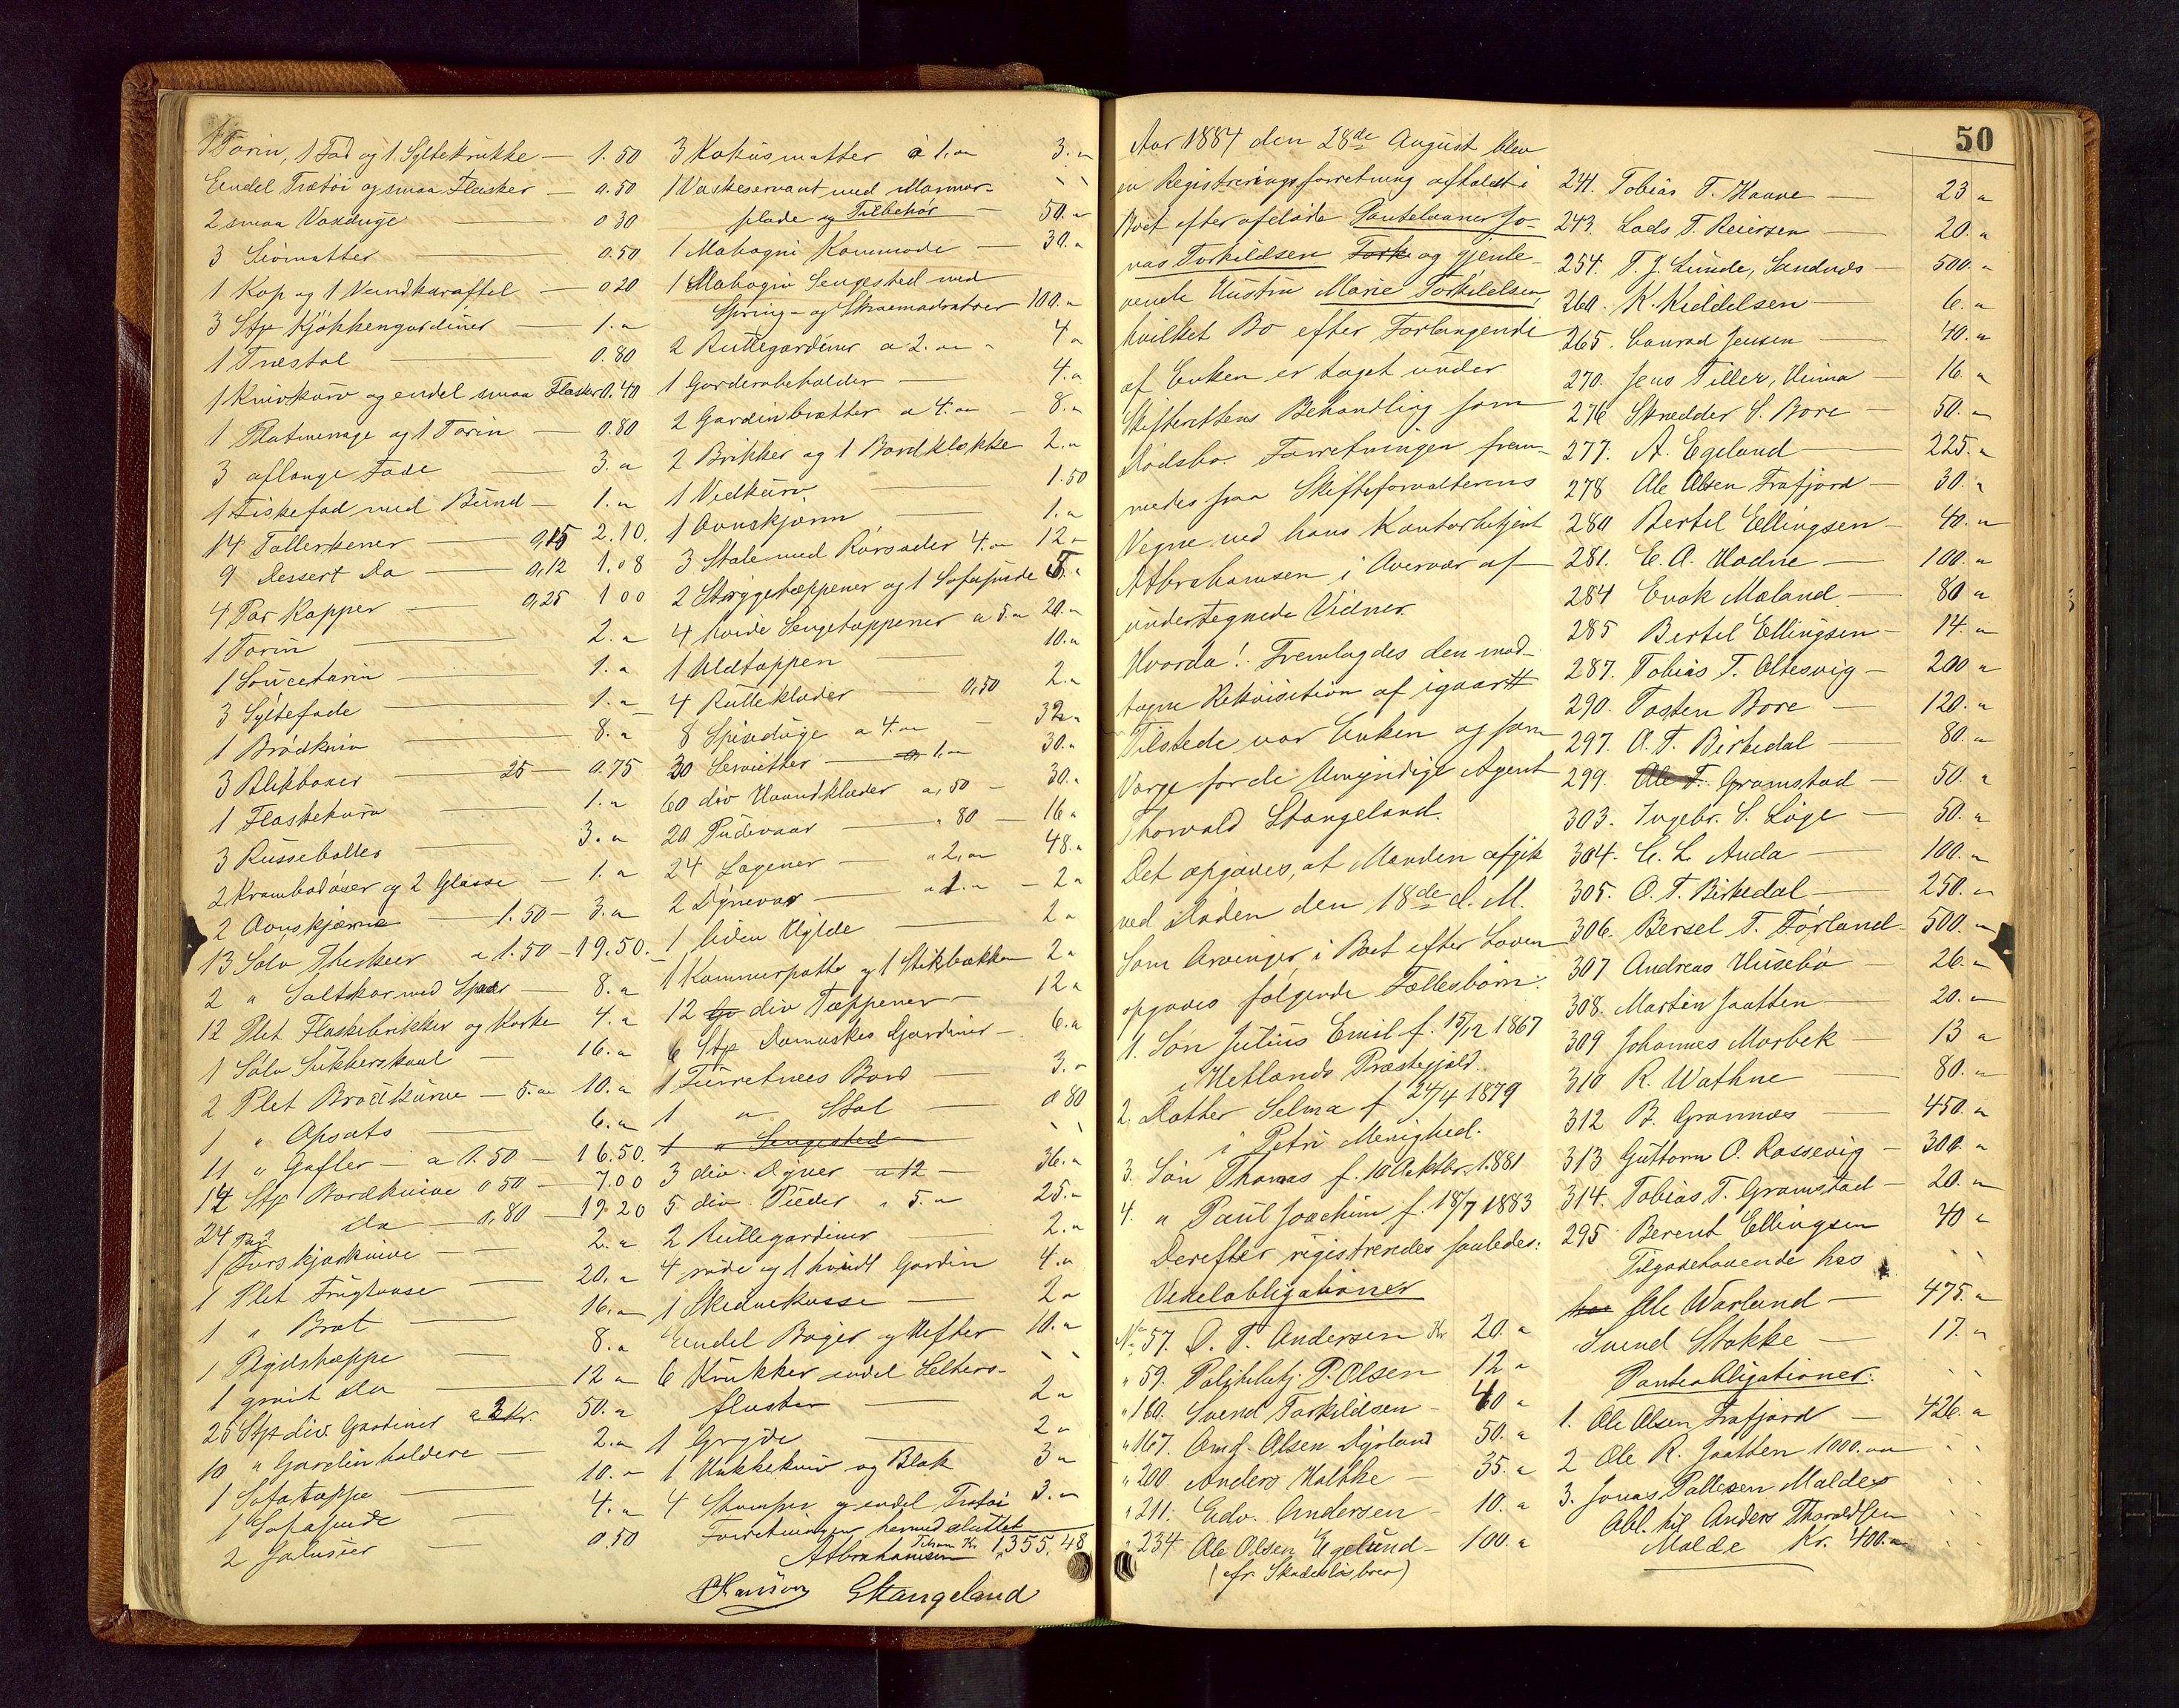 1 Terin, 1 Fad og 1 Syltekrukke — 1.50
Endel Trætøi og smaa Flasker — 0.50
2 smaa Voxduge — 0 30
3 Sivmatter — 0.50
1 Kop og 1 Vandkaraffel — 0 20
3 Stp Kjøkkengardiner — 1. "
1 Træstol — 0.80
1 Knivkurv og endel smaa Flasker 0.40
1 Platmenage og 1 Terin — 0.80
3 aflange Fade — 3. "
1 Fiskefad med Bund — 1. "
14 Tallerkener — 0,15 2.10.
9 Dessert Do — 0,12 1.08
4 Par Kopper — 0,25 1 00
1 Terin — 2. "
1 Sauceterin — 1. "
3 Syltefade — 1. "
1 Brødkniv — 8. "
3 Blikboxer — 25 — 0.75
1 Flaskekurv — 1. "
3 Russeboller — 3. "
2 Krambodaaser og 2 Glasse — 1. "
2 Ovnskjærme — 1.50 — 3. "
13 Sølv Theskeer a 1.50 — 19.50.
2 " Saltkar med Skeer — 8. "
12 Plet Flaskebrikker og Korke 4. "
1 Sølv Sukkerskaal — 16. "
2 Plet Brødkurve — 5. " 10. "
1 " Opsats — 6. "
11 " Gafler — a 1.50 — 16.50.
14 Stp Bordknive 0 50 — 7.00
24 Do — 0,80 — 19.20
1 Par Forskjærknive — 2. "
1 Plet Frugtvase — 20. "
1 " Bræt — 16. "
1 Pligdstæppe — 8. "
1 graat Do — 12 "
25 Stp div. Gardiner a 2 Kr. 50. "
10 " Gardinholdere — 2. "
1 Sofatæppe — 10. "
1 Sofapude — 4. "
2 Jalusier — 0.50
3 Kokusmatter à 1. " 3. "
1 Vaskeservant med Marmor-
plade og Tilbehør — 50. "
1 Mahogni Kommode — 30. "
1 Mahogni Sengested med
Spring- og Straamadratser 100. "
2 Rullegardiner a 2. " 4 "
1 Garderobeholder — 4. "
2 Gardinbrætter a 4. " — 8. "
2 Brikker og 1 Bordklokke 2. "
1 Vedkurv — 1.50
1 Ovnskjærm — 1. "
3 Stole med Rørsæder 4. " 12 "
2 Strygetæppener og 1 Sofapude 5. "
4 hvide Sengetæppener a 5. " 20. "
1 Uldtæppen — 10. "
4 Rulleklæder — 0,50 2. "
8 Spiseduge a 4. " — 32 "
30 Servietter — a 1. " 30. "
60 div Haandklæder a, 50 — 30. "
20 Pudevaar — " 80 — 16 "
24 Lagener — " 2, " 48. "
2 Dynevar — " 1. " — 2 "
1 liden Hylde — 2 "
1 Kammerpotte og 1 Stikbækken 2 "
12 div Tæppener — 12 "
6 Stp Damaskes Gardiner — 6. "
1 Furretræes Bord — 3. "
1 " Stol — 0 80
1 " Sengested
3 div. Dyner a 12 — 36. "
5 div. Puder " 5. " 25. "
2 Rullegardiner — 2. "
4 røde og 1 hvidt Gardin 4. "
1 Skeduekasse — 2 "
Endel Bøger og Hefter 10. "
6 Krukker endel Selters-
flasker — 2 "
1 Gryde — 2 "
1 Hakkekniv og Blok 3 "
4 Stamper og endel Trætøi 3. "
Forretningen hermed sluttet
Tilsam Kr. 1,355.48
Abrahamsen
PHansson Stangeland
50
Aar 1884 den 28de August blev
en Registreringsforretning afholdt i
Boet efter afdøde Panteleaner Jo-
nas Torkildsen Tork og gjenle-
vende Hustru Marie Torkildsen,
hvilket Bo efter Forlangende
af Enken er taget under
Skifterettens Behandling som
Dødsbo. Forretningen frem-
medes paa Skifteforvalterens
Vegne ved hans Kontorbetjent
Abrahamsen i Overvær af
undertegnede Vidner.
Hvorda! Fremlagdes den mod-
tagne Rekvisition af igaar #
Tilstede var Enken og som
Værge for de Umyndige Agent
Thorvald Stangeland.
Det opgaves, at Manden afgik
ved Døden den 18de d. M.
Som Arvinger i Boet efter Loven
opgaves følgende Fællesbørn:
1. Søn Julius Emil f. 15/12 1867
i Hetlands Præstegjæld.
2. Datter Selma f 24/4 1879
i Petri Menighed.
3. Søn Thomas f. 10 Oktbr. 1881
4. " Paul Joachim f. 18/7 1883
Derefter registreredes saaledes:
Vexelobligationer
No 57. O. T. Andersen Kr 20. "
" 59. Politibetj. P. Olsen 12 "
" 160. Svend Torkildsen — 40 "
" 167. Amd. Olsen Dysland 50. "
" 200 Anders Holtke — 35. "
" 211. Edv. Andersen — 10. "
" 234 Ole Olsen Egelund — 100. "
(cfr. Skadesløsbrev)
241. Tobias T. Haave — 23 "
243. Lads T. Reiersen — 20. "
254. T. J. Lunde, Sandnæs — 500. "
260. K. Kiddelsen — 6. "
265. Conrad Jensen — 40. "
270. Jens Tiller, Hinna — 16. "
276 Skrædder S. Bore — 50. "
277. A. Egeland — 225. "
278 Ole Olsen Frafjord — 30. "
280 Bertel Ellingsen — 40. "
281. E. A. Hadne — 100. "
284 Enok Mæland — 80 "
285 Bertel Ellingsen — 14. "
287. Tobias T. Oltesvig — 200 "
290. Tosten Bore — 120. "
297. O. T. Birkedal — 80. "
299. Ole T. Gramstad — 50. "
303. Ingebr. S. Løge — 50. "
304. E. L. Auda — 100. "
305. O. T. Birkedal — 250. "
306. Bersel T. Førland 500. "
307 Andreas Husebø — 26. "
308. Martin Jaatten — 20. "
309 Johannes Morbek — 13 "
310 R. Wathne — 80. "
312 B. Grannæs — 450. "
313 Guttorm O. Rossevig — 300. "
314. Tobias T. Gramstad — 20. "
295 Berent Ellingsen 40 "
Tilgodehavende hos
hos Ole Warland — 475. "
Svend Stokke — 17. "
Panteobligationer:
1. Ole Olsen Frafjord — 426. "
2 Ole R. Jaatten 1000. "
3. Jonas Pallesen Maldes
Obl. til Anders Thoraldsen
Malde Kr. 400. "